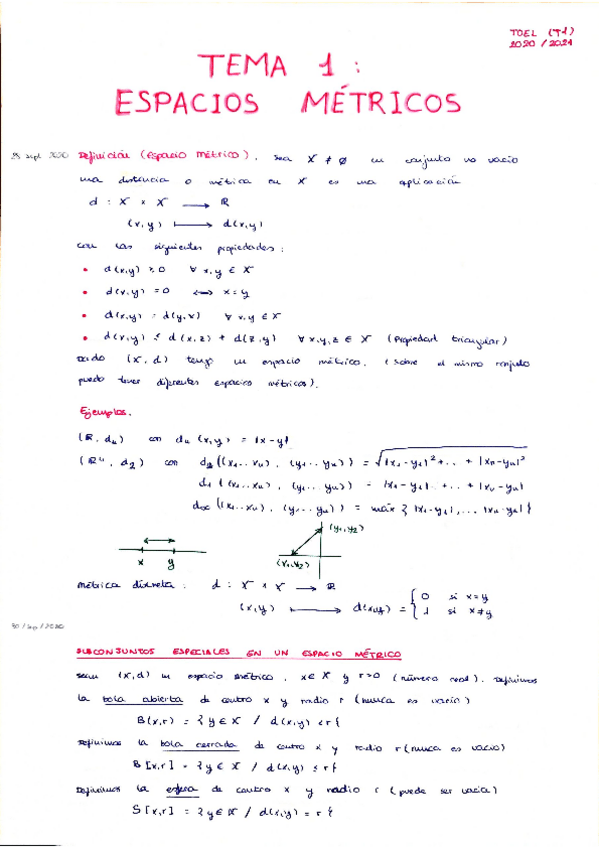 TOEL (T1)
2020 / 2021
TEMA 1 :
ESPACIOS MÉTRICOS
sept 2020 Definición (Espacio Métrico). Sea X ≠ ∅ un conjunto no vacío
una distancia o métrica en X es una aplicación
d : X × X ⟶ R
(x,y) ⟼ d(x,y)
con las siguientes propiedades :
• d(x,y) ≥ 0 ∀ x,y ∈ X
• d(x,y) = 0 ⟷ x=y
• d(x,y) = d(y,x) ∀ x,y ∈ X
• d(x,y) ≤ d(x,z) + d(z,y) ∀ x,y,z ∈ X (Propiedad triangular)
Dado (X, d) tengo un espacio métrico. (Sobre el mismo conjunto
puedo tener diferentes espacios métricos).
Ejemplos.
(R, du) con du (x,y) = |x-y|
(Rⁿ, d2) con d2((x1...xn), (y1...yn)) = √|x1-y1|²+...+|xn-yn|²
d1((x1...xn), (y1...yn)) = |x1-y1|+...+|xn-yn|
d∞((x1...xn), (y1...yn)) = máx {|x1-y1|,...|xn-yn|}
(y1,y2)
x y (x1,x2)
Métrica discreta : d : X × X ⟶ R
(x,y) ⟼ d(x,y) = { 0 si x=y
1 si x≠y
30/sep/2020
SUBCONJUNTOS ESPECIALES EN UN ESPACIO MÉTRICO
Sean (X,d) un espacio métrico, x∈X y r>0 (número real). Definimos
la bola abierta de centro x y radio r (nunca es vacío)
B(x,r) = {y∈X / d(x,y) < r}
Definimos la bola cerrada de centro x y radio r (nunca es vacío)
B[x,r] = {y∈X / d(x,y) ≤ r}
Definimos la esfera de centro x y radio r (puede ser vacía)
S[x,r] = {y∈X / d(x,y) = r}